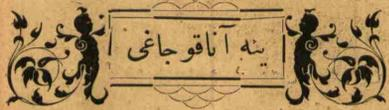 ینه آنا قوجاغی